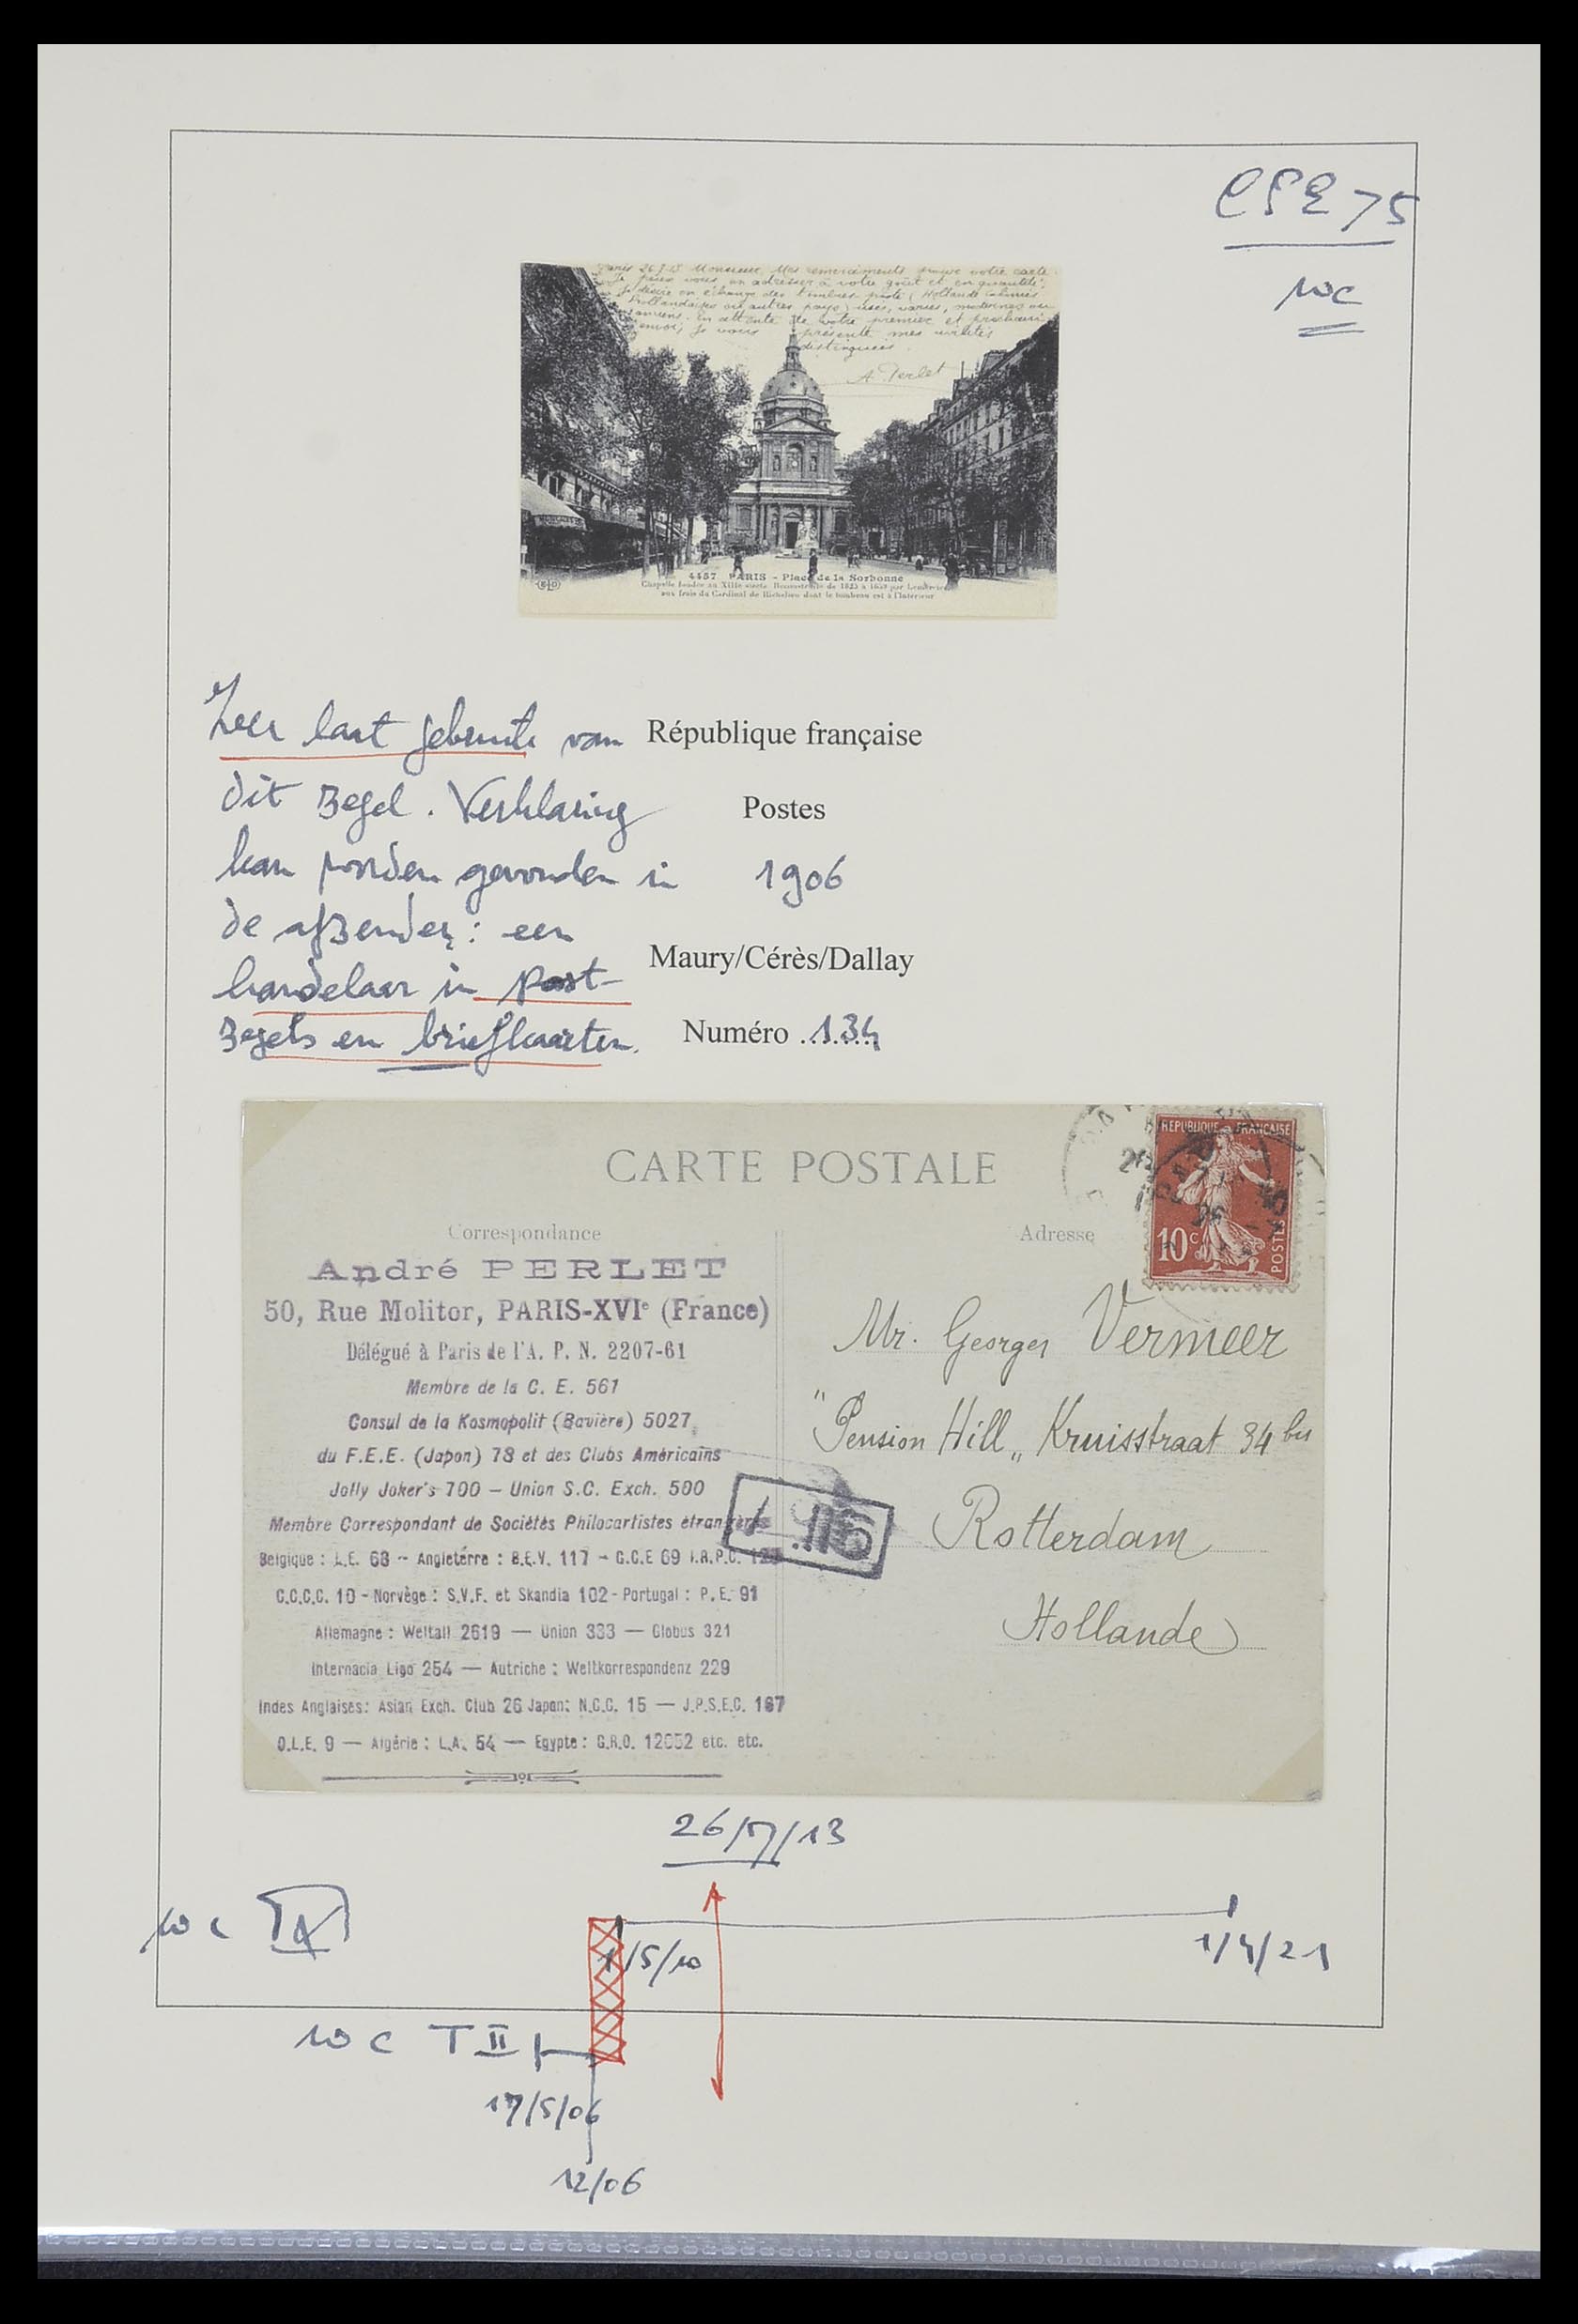 CPE 75
10c
Paris 26.7.13 Monsieur, Mes remerciements pour votre carte.
Je puis vous en adresser à votre goût et en quantité;
je désire en échange des timbres poste (Hollande colonies
Hollandaises ou autres pays) usés, variés, modernes ou
anciens. En attente de votre premier et prochain
envoi, je vous présente mes civilités
distinguées.
A. Perlet
4457 PARIS - Place de la Sorbonne
Chapelle fondée au XIIIe siècle. Reconstruite de 1635 à 1659 par
aux frais du Cardinal de Richelieu dont le tombeau est à l'intérieur
ELD
Zeer laat gebruik van
dit zegel. Verklaring
kan worden gevonden in
de afzender: een
handelaar in post-
zegels en briefkaarten.
République française
Postes
1906
Maury/Cérès/Dallay
Numéro 134
CARTE POSTALE
Correspondance
Adresse
REPUBLIQUE FRANÇAISE
10c
POSTES
André PERLET
50, Rue Molitor, PARIS-XVIe (France)
Délégué à Paris de l'A. P. N. 2207-61
Membre de la C. E. 561
Consul de la Kosmopolit (Bavière) 5027
du F.E.E. (Japon) 78 et des Clubs Américains
Jolly Joker's 700 – Union S.C. Exch. 500
Membre Correspondant de Sociétés Philocartistes étrangères
Belgique : L.E. 68 - Angleterre : B.E.V. 117 - G.C.E 69 I.R.P.C.
C.C.C.C. 10 - Norvège : S.V.F. et Skandia 102 - Portugal : P.E. 91
Allemagne : Weltall 2619 — Union 333 — Globus 321
Internacia Ligo 254 — Autriche : Weltkorrespondenz 229
Indes Anglaises : Asian Exch. Club 26 Japon : N.C.C. 15 — J.P.S.E.C. 167
O.L.E. 9 — Algérie : L.A. 54 — Egypte : G.R.O. 12052 etc. etc.
Mr. Georges Vermeer
"Pension Hill„ Kruisstraat 34 bis
Rotterdam
Hollande
26/7/13
10 c
1/5/10
1/4/21
10 c T II
17/5/06
12/06